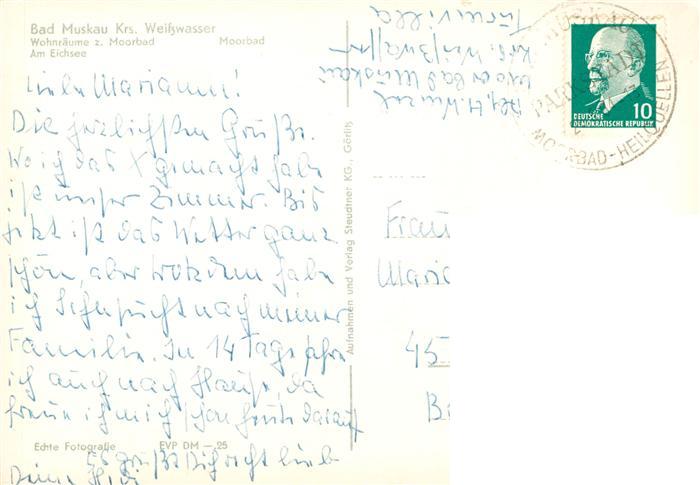 Bad Muskau Krs. Weißwasser
Wohnräume z. Moorbad Moorbad
Am Eichsee
Liebe Marianne!
Die herzlichsten Grüße.
Wo ich das X gemacht habe
ist unser Zimmer. Bis
jetzt ist das Wetter ganz
schön, aber trotzdem habe
ich Sehnsucht nach meiner
Familie. In 14 Tage fahre
ich auch nach Hause, da
freue ich mich schon heute darauf
Es grüßt Dich recht lieb
Deine
Echte Fotografie EVP DM —.25
Aufnahmen und Verlag Steudtner KG. Görlitz
Abs. H.
Bad Muskau
Krs. Weißwasser
Turmvilla
PARKSTADT
MOORBAD-HEILQUELLEN
DEUTSCHE
DEMOKRATISCHE REPUBLIK
10
Frau
Maria
45
B